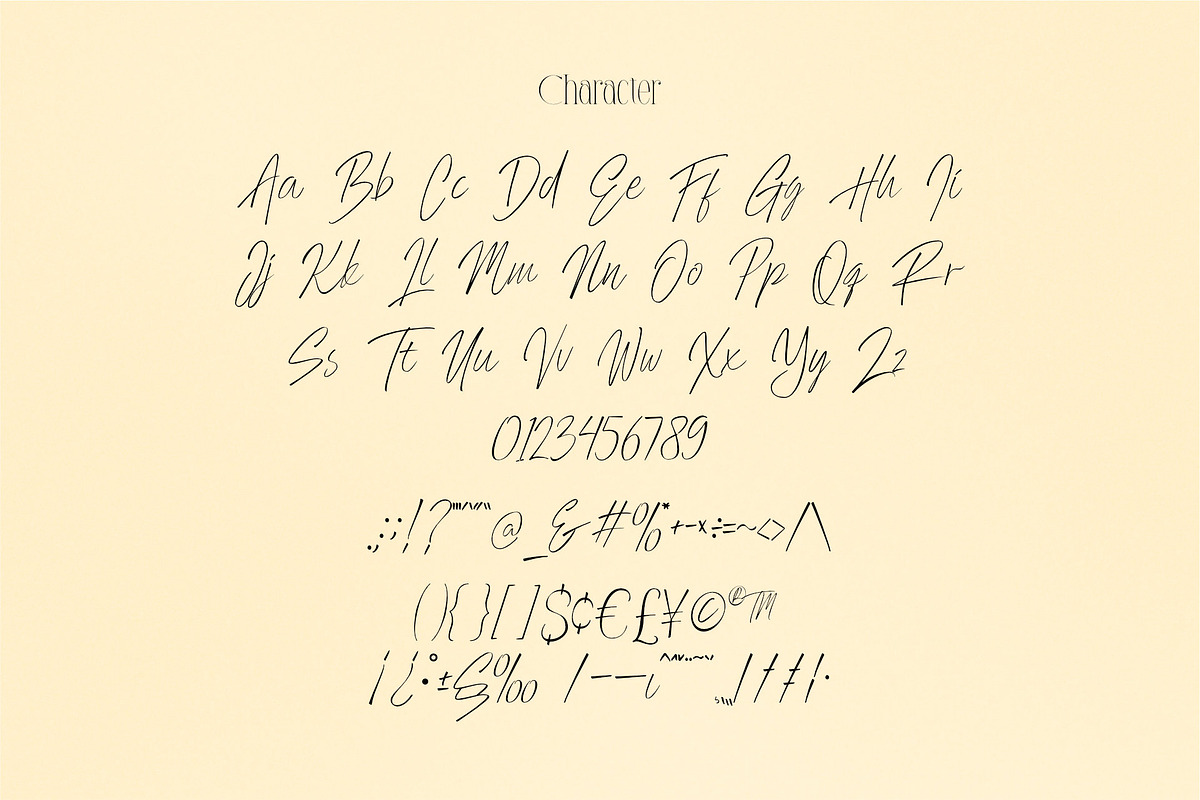 Character
Aa Bb Cc Dd Ee Ff Gg Hh Ii
Jj Kk Ll Mm Nn Oo Pp Qq Rr
Ss Tt Uu Vv Ww Xx Yy Zz
0123456789
.,:;!?'"@_&#%*+-×÷=~<>/\
(){}[]$¢€£¥©®™
¡¿•°±§‰